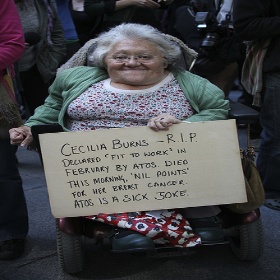 CECILIA BURNS – R.I.P.
DECLARED 'FIT TO WORK' IN
FEBRUARY BY ATOS DIED
THIS MORNING. 'NIL POINTS'
FOR HER BREAST CANCER.
ATOS IS A SICK JOKE.